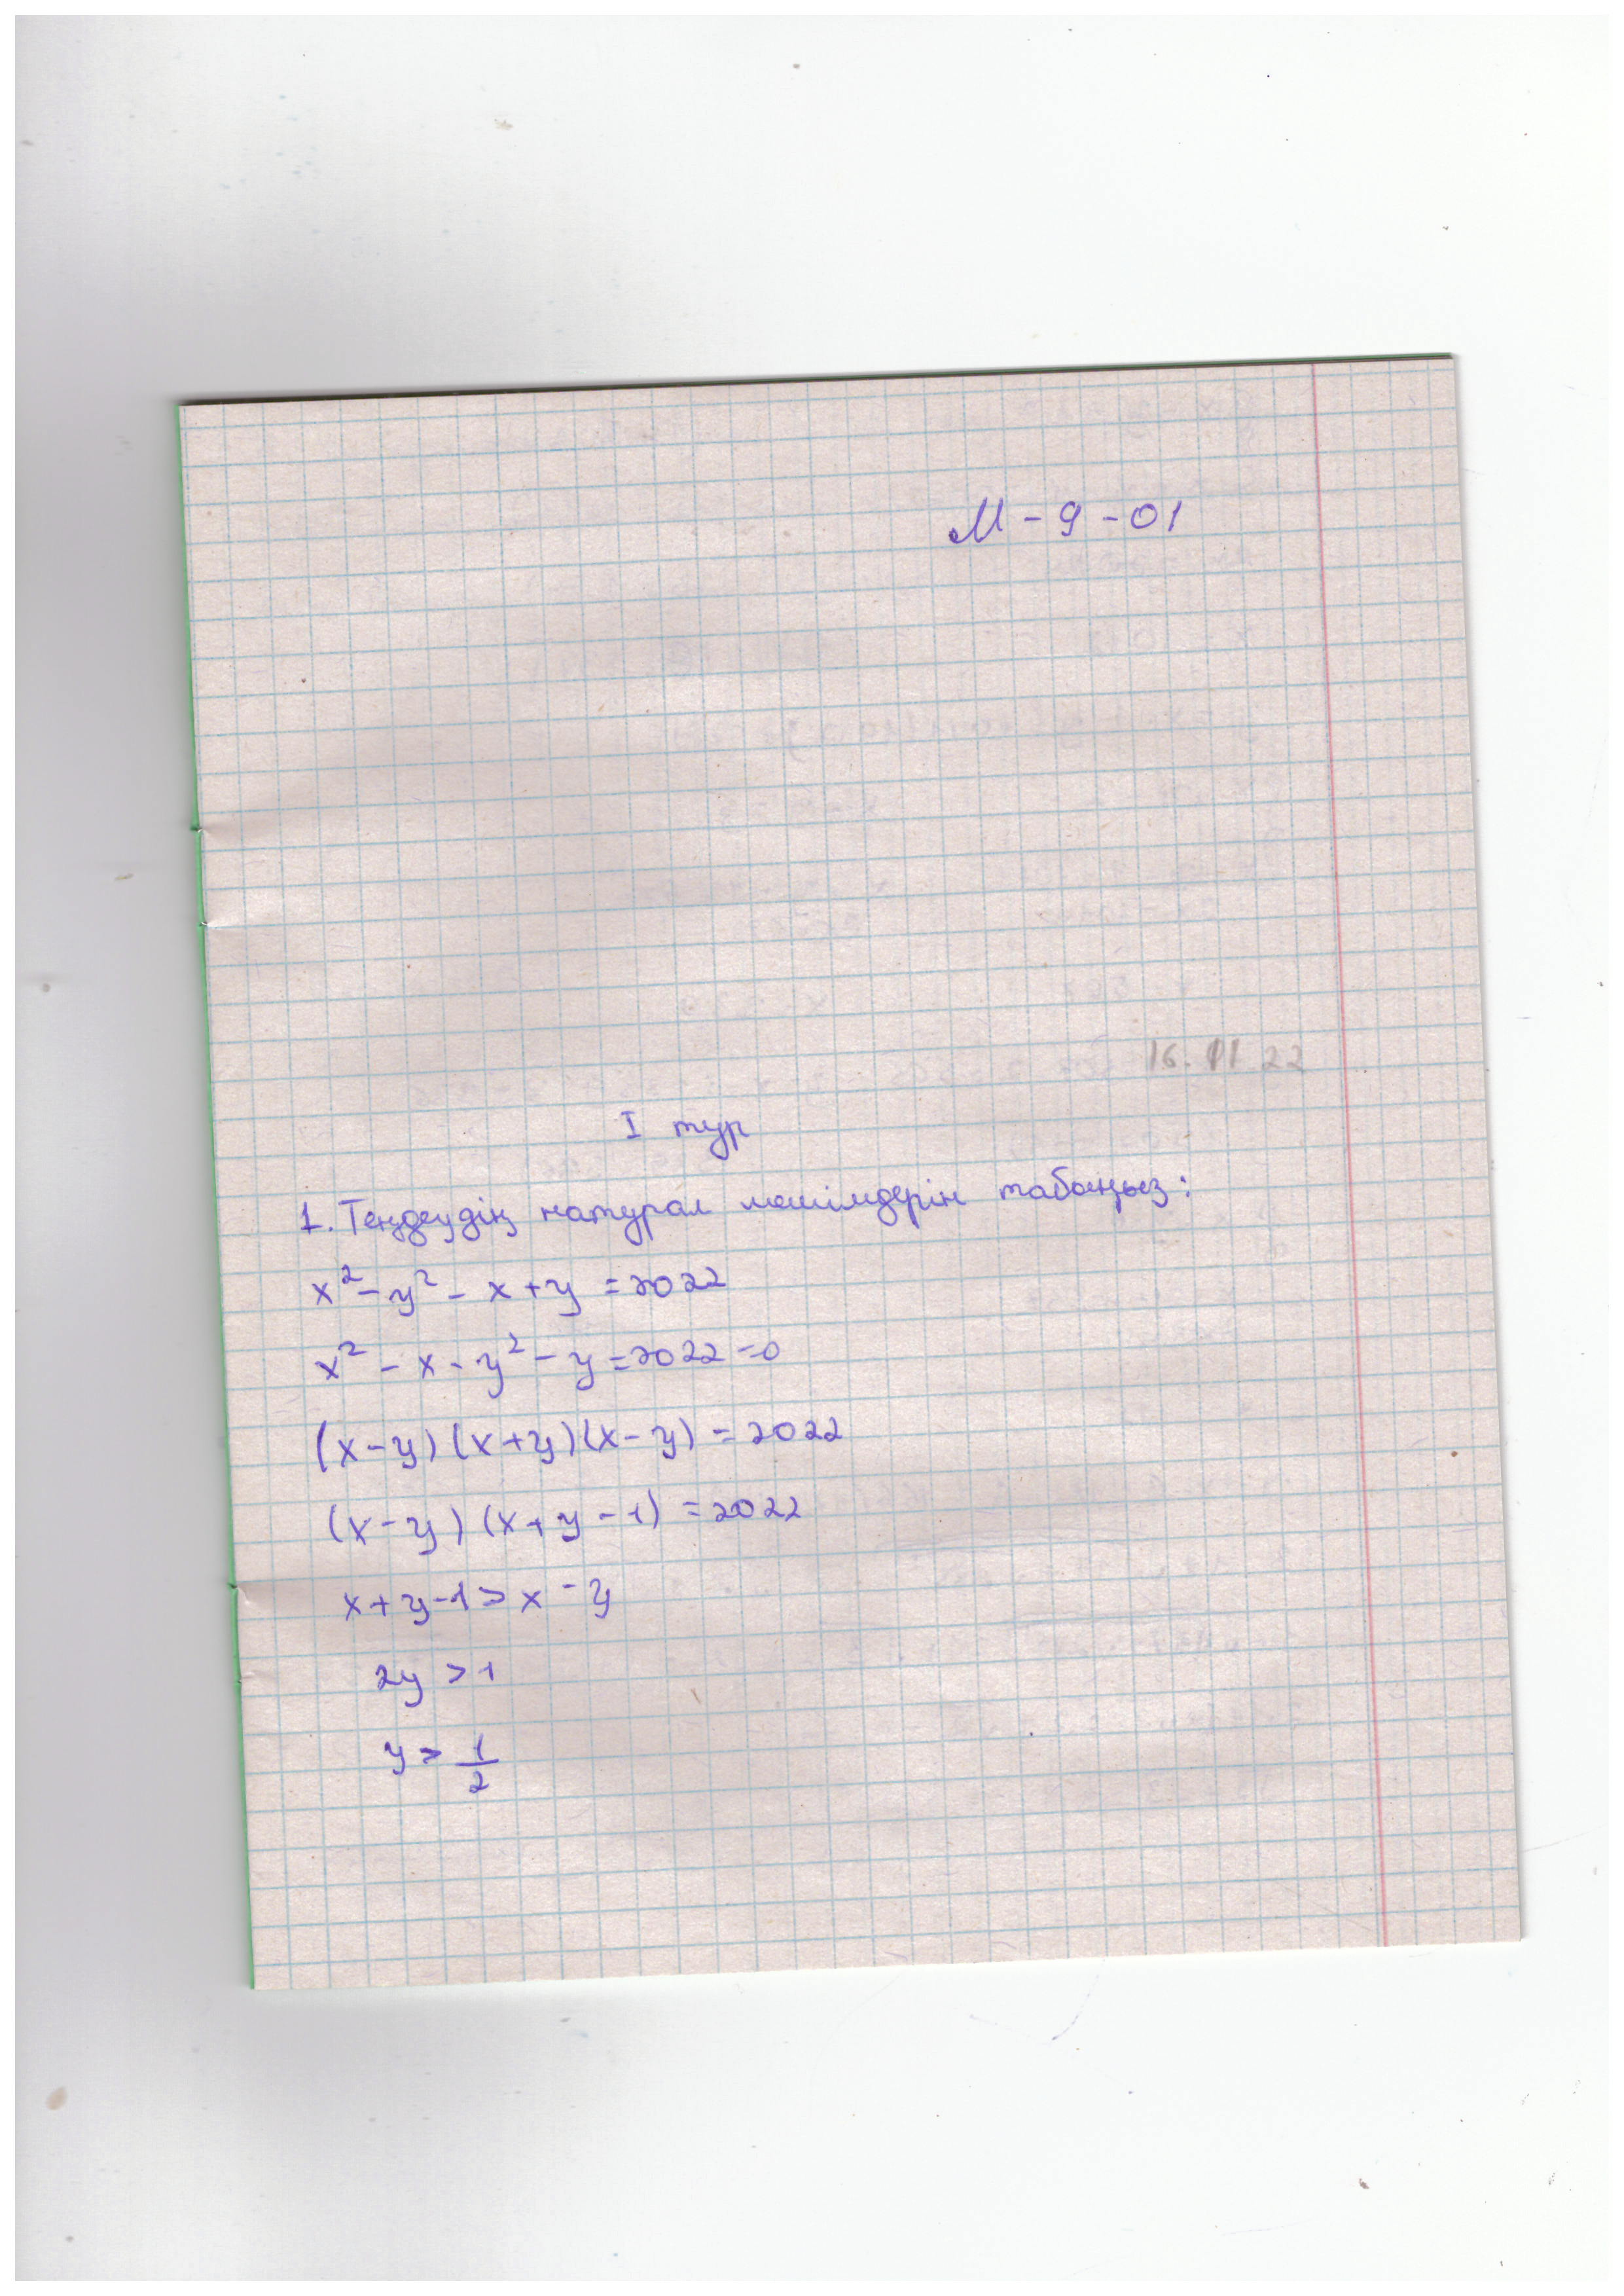 М - 9 - 01
16. 11 22
I тур
1. Теңдеудің натурал шешімдерін табыңыз:
x² - y² - x + y = 2022
x² - x - y² - y = 2022 = 0
(x - y) (x + y) (x - y) = 2022
(x - y) (x + y - 1) = 2022
x + y - 1 > x - y
2y > 1
y > 1/2